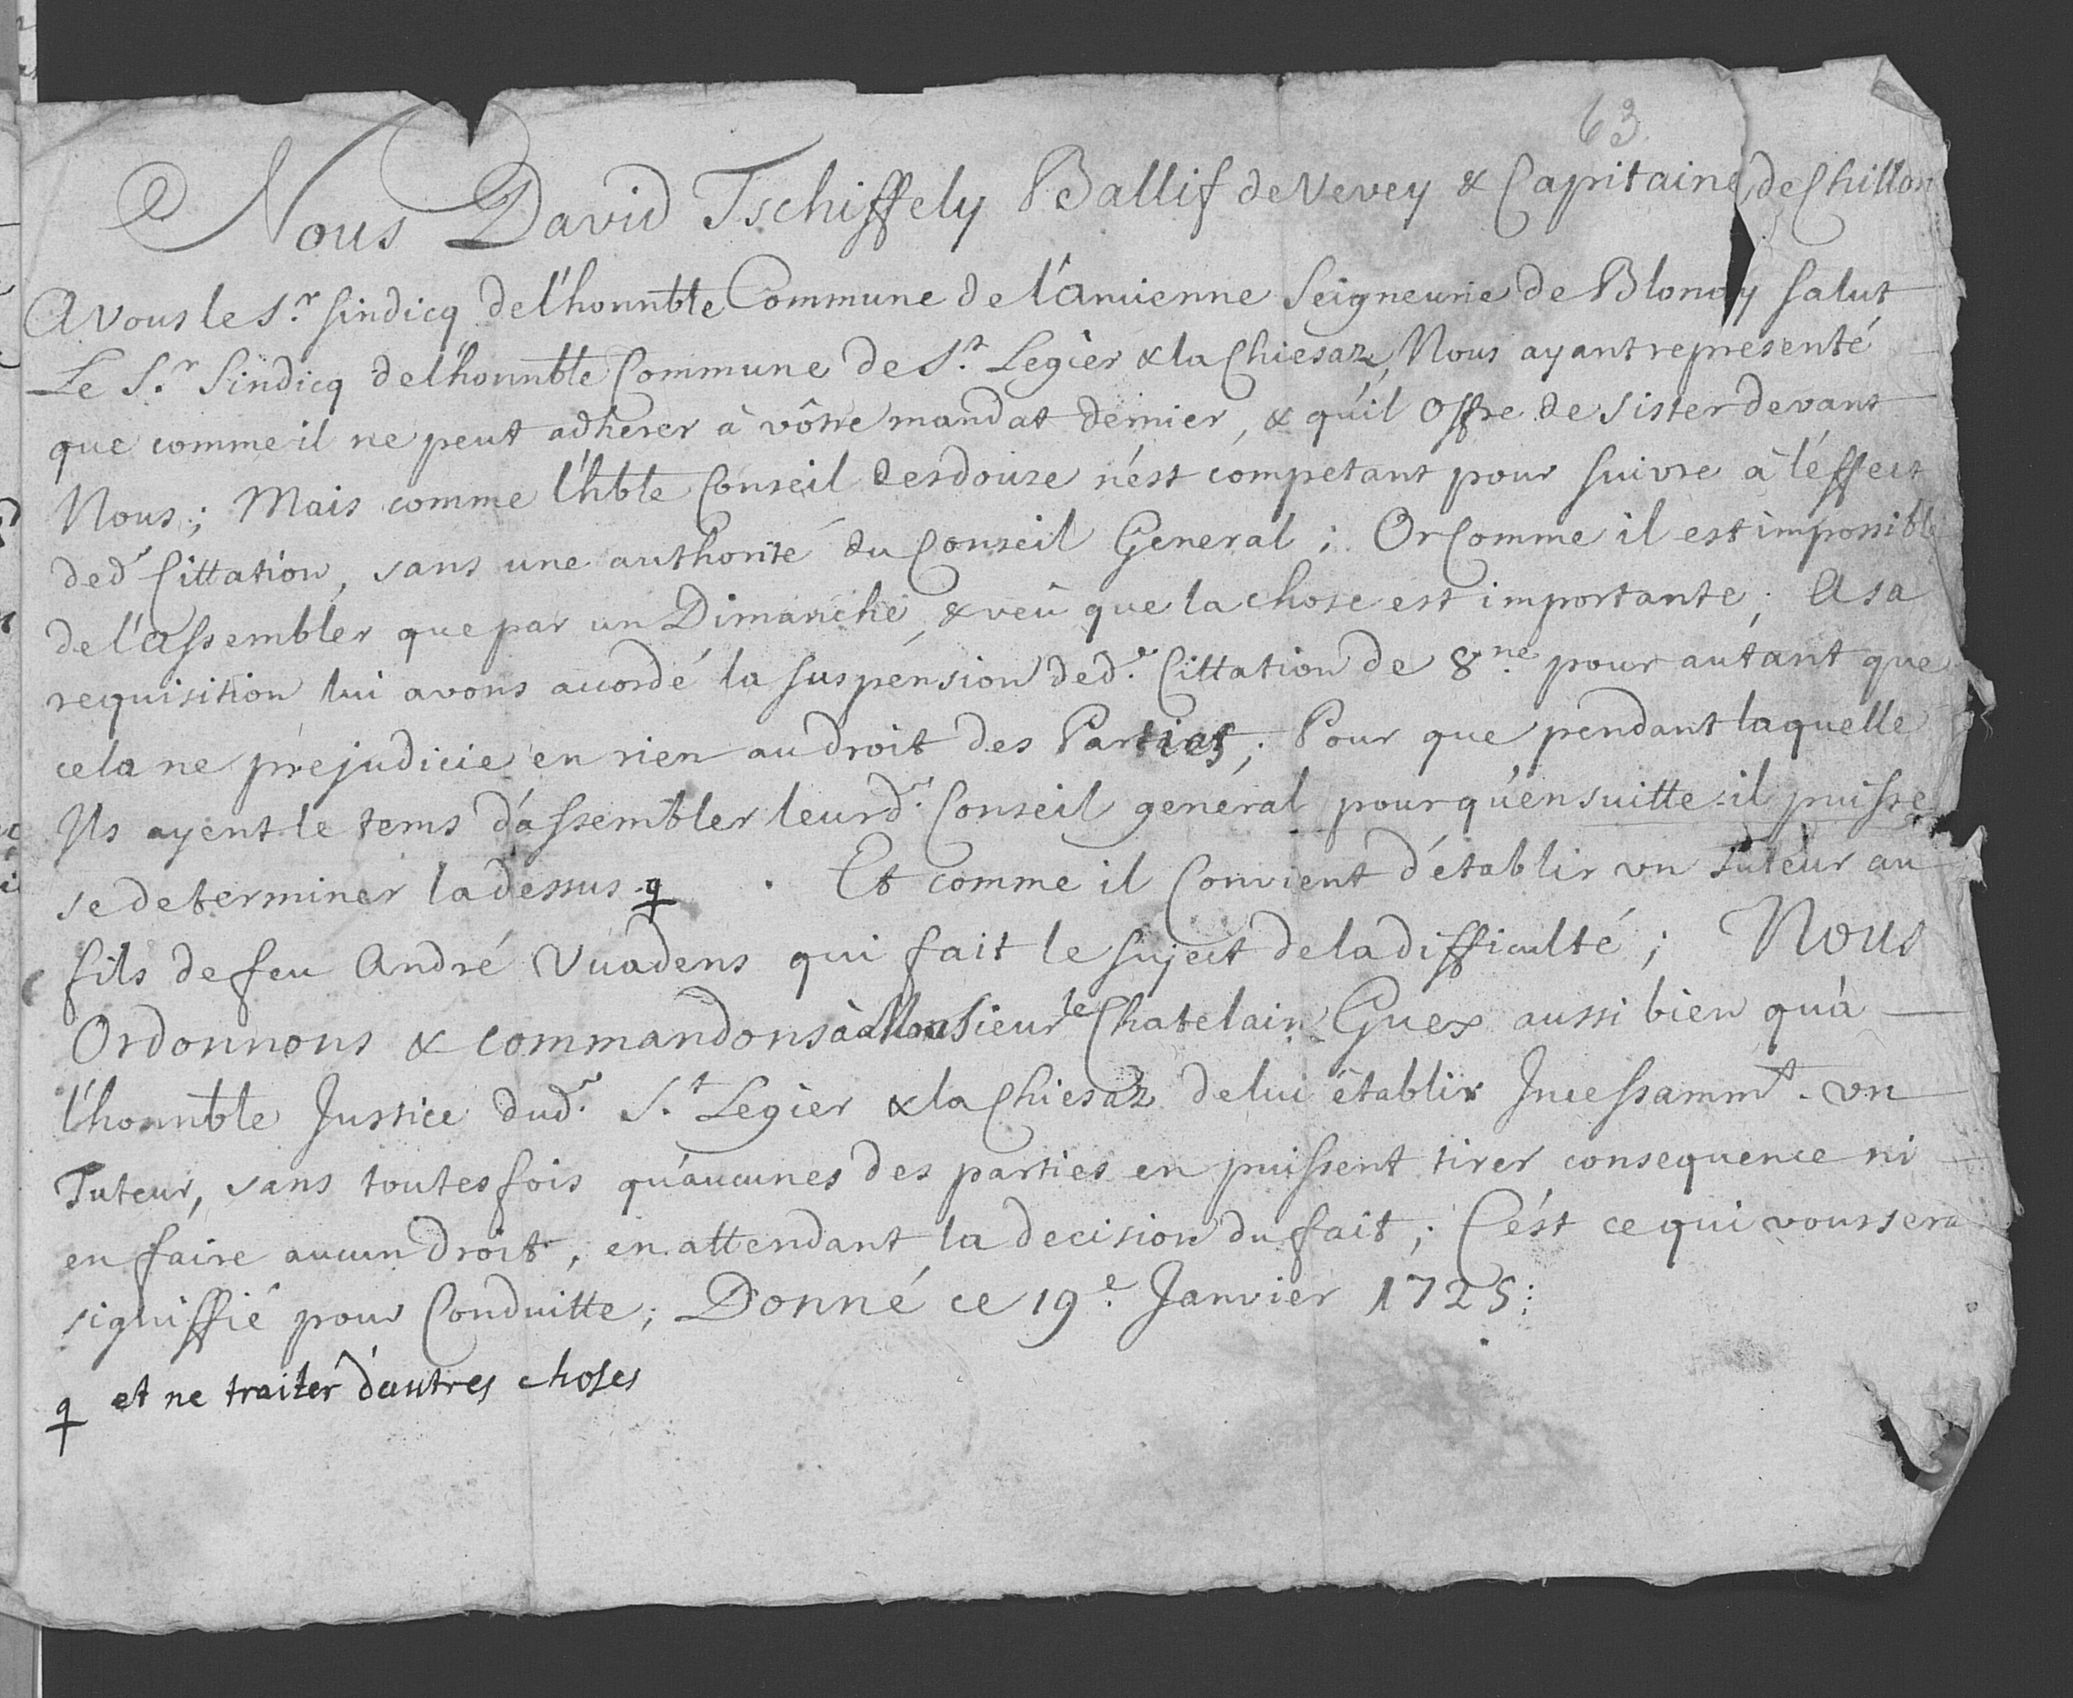 63
Nous David Tschiffely Ballif de Vevey & Capitaine de Chillon
A vous le S.r sindicq de l'honnble Commune de l'ancienne Seigneurie de Blonay salut
Le S.r Sindicq de l'honnble Commune de S.t Legier & la Chiesaz, Nous ayant representé
que comme il ne peut adherer à vôtre mandat dernier, & qu'il offre de sister devant
Nous; Mais comme l'hble Conseil des douze n'est competant pour suivre à l'éffect
de d.e Cittation, sans une authorité du Conseil General; Or Comme il est impossible
de l'assembler que par un Dimanche, & veû que la chose est importante; A sa
requisition lui avons acordé la suspension de d.e Cittation de 8.ne pour autant que
cela ne prejudicie en rien au droit des Parties; Pour que pendant laquelle
Ils ayent le tems d'assembler leur d.t Conseil general pour qu'ensuitte il puisse
se determiner la dessus ⚲ . Et comme il Convient d'établir un Tuteur au
fils de feu André Vuadens qui fait le sujet de la difficulté; Nous
Ordonnons & commandons à Monsieur le Chatelain Guex aussi bien qu'à
l'honnble Justice dud.t S.t Legier & la Chiesaz de lui établir Incessamm.t un
Tuteur, sans toutes fois qu'aucunes des parties en puissent tirer consequence ni
en faire aucun droit, en attendant la decision du fait; C'ést ce qui vous sera
signiffié pour Conduitte; Donné ce 19.e Janvier 1725:
⚲ et ne traiter d'autres choses